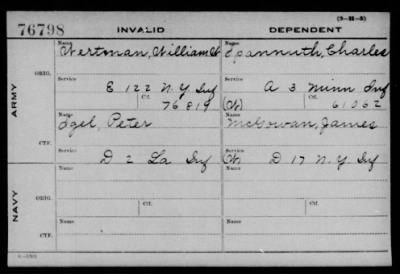 (3-21-5)
76798 INVALID DEPENDENT
Name Name
Wertman, William H. Spannuth, Charles
ORIG. Service Service
E 122 N.Y. Inf A 3 Minn Inf
Ctf. 76819 (W) Ctf. 61062
ARMY
Name Name
Egel, Peter McGowan, James
CTF. Service Service
D 2 La Inf (W) D 17 N.Y Inf
Name Name
ORIG. Service Ctf. Service Ctf.
NAVY
Name Name
CTF. Service Service